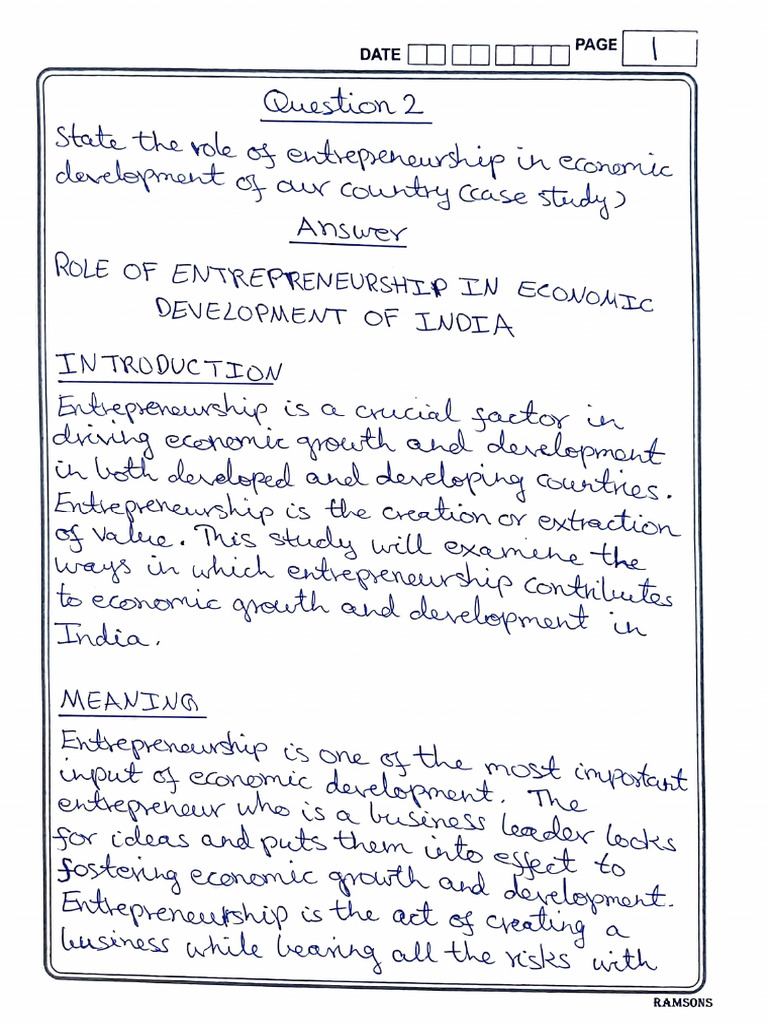 DATE PAGE 1
Question 2
State the role of entrepreneurship in economic
development of our country (case study)
Answer
ROLE OF ENTREPRENEURSHIP IN ECONOMIC
DEVELOPMENT OF INDIA
INTRODUCTION
Entrepreneurship is a crucial factor in
driving economic growth and development
in both developed and developing countries.
Entrepreneurship is the creation or extraction
of value. This study will examine the
ways in which entrepreneurship contributes
to economic growth and development in
India.
MEANING
Entrepreneurship is one of the most important
input of economic development. The
entrepreneur who is a business leader looks
for ideas and puts them into effect to
fostering economic growth and development.
Entrepreneurship is the act of creating a
business while bearing all the risks with
RAMSONS